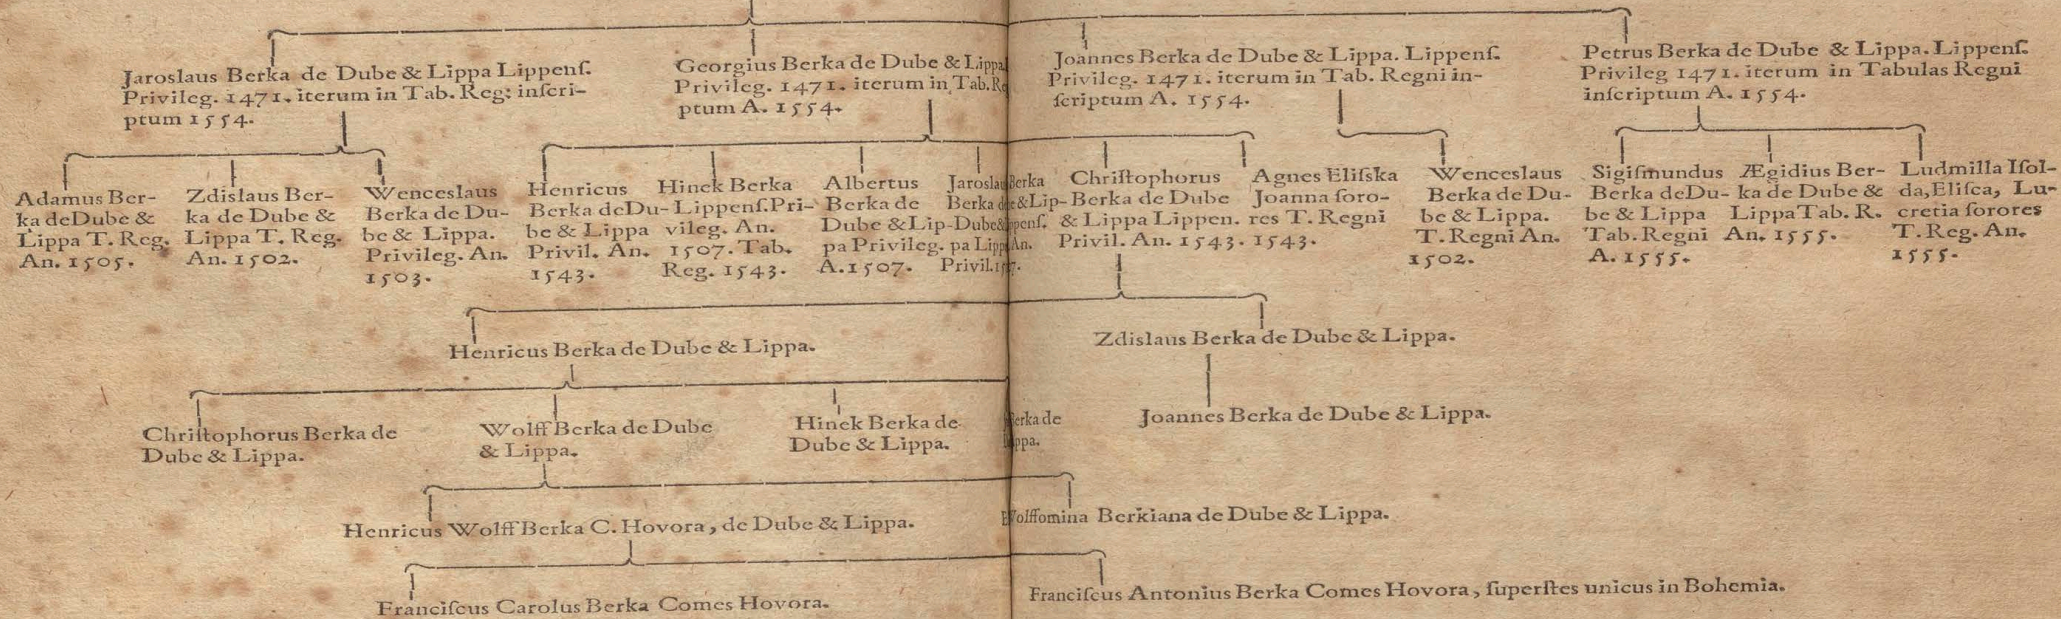 Jaroslaus Berka de Dube & Lippa Lippenſ.
Privileg. 1471. iterum in Tab. Reg: inſcri-
ptum 1554.
Georgius Berka de Dube & Lippa.
Privileg. 1471. iterum in Tab. Re
ptum A. 1554.
Joannes Berka de Dube & Lippa. Lippenſ.
Privileg. 1471. iterum in Tab. Regni in-
ſcriptum A. 1554.
Petrus Berka de Dube & Lippa. Lippenſ.
Privileg 1471. iterum in Tabulas Regni
inſcriptum A. 1554.
Adamus Ber-
ka de Dube &
Lippa T. Reg.
An. 1505.
Zdislaus Ber-
ka de Dube &
Lippa T. Reg.
An. 1502.
Wenceslaus
Berka de Du-
be & Lippa.
Privileg. An.
1503.
Henricus
Berka de Du-
be & Lippa
Privil. An.
1543.
Hinek Berka
Lippenſ. Pri-
vileg. An.
1507. Tab.
Reg. 1543.
Albertus
Berka de
Dube & Lip-
pa Privileg.
A. 1507.
Jaroslau Berka
Berka de & Lip-
Dube & ppenſ.
pa Lipp An.
Privil. 1507.
Chriſtophorus
Berka de Dube
& Lippa Lippen.
Privil. An. 1543.
Agnes Eliſska
Joanna ſoro-
res T. Regni
1543.
Wenceslaus
Berka de Du-
be & Lippa.
T. Regni An.
1502.
Sigiſmundus
Berka de Du-
be & Lippa
Tab. Regni
A. 1555.
Ægidius Ber-
ka de Dube &
Lippa Tab. R.
An. 1555.
Ludmilla Iſol-
da, Eliſca, Lu-
cretia ſorores
T. Reg. An.
1555.
Henricus Berka de Dube & Lippa.
Zdislaus Berka de Dube & Lippa.
Chriſtophorus Berka de
Dube & Lippa.
Wolff Berka de Dube
& Lippa.
Hinek Berka de
Dube & Lippa.
Berka de
Lippa.
Joannes Berka de Dube & Lippa.
Henricus Wolff Berka C. Hovora, de Dube & Lippa.
Wolffomina Berkiana de Dube & Lippa.
Franciſcus Carolus Berka Comes Hovora.
Franciſcus Antonius Berka Comes Hovora, ſuperſtes unicus in Bohemia.